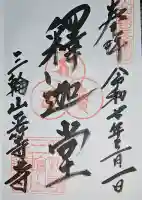 奉拝
令和七年三月一日
釋迦堂
三輪山平等寺